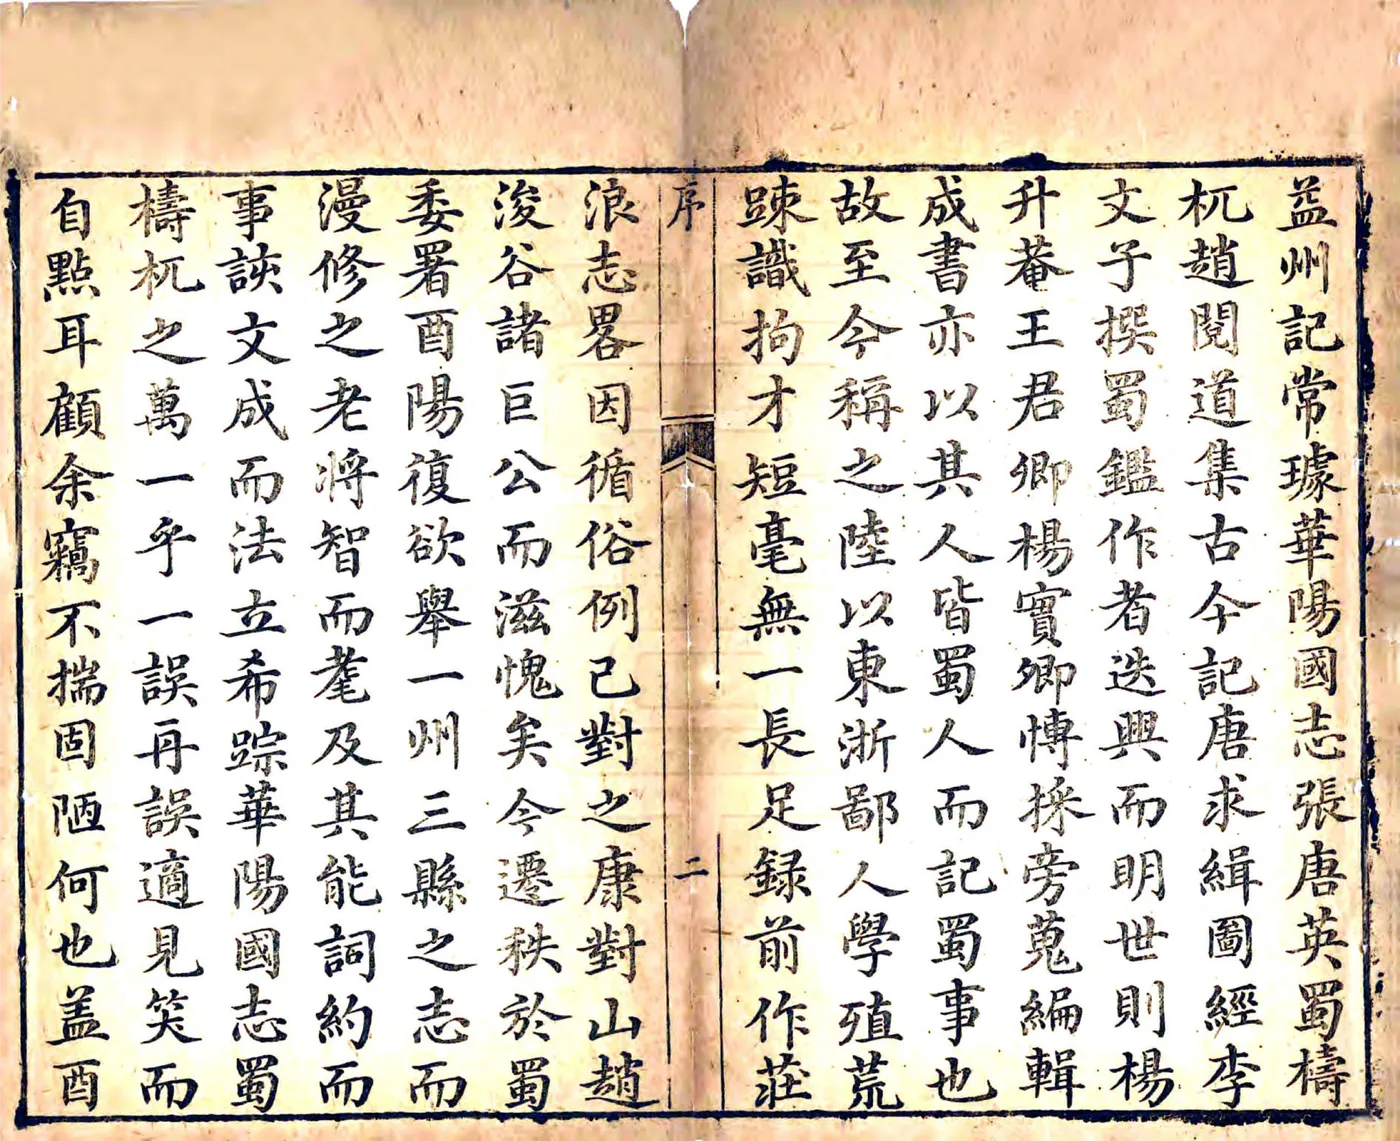 益州記常璩華陽國志張唐英蜀檮
杌趙閱道集古今記唐求緝圖經李
文子撰蜀鑑作者迭興而明世則楊
升菴王君卿楊實卿博採旁蒐編輯
成書亦以其人皆蜀人而記蜀事也
故至今稱之陸以東浙鄙人學殖荒
踈識拘才短毫無一長足録前作莊
序
二
浪志畧因循俗例已對之康對山趙
浚谷諸巨公而滋愧矣今遷秩於蜀
委署酉陽復欲舉一州三縣之志而
漫修之老將智而耄及其能詞約而
事詼文成而法立希踪華陽國志蜀
檮杌之萬一乎一誤再誤適見笑而
自點耳顧余竊不揣固陋何也盖酉